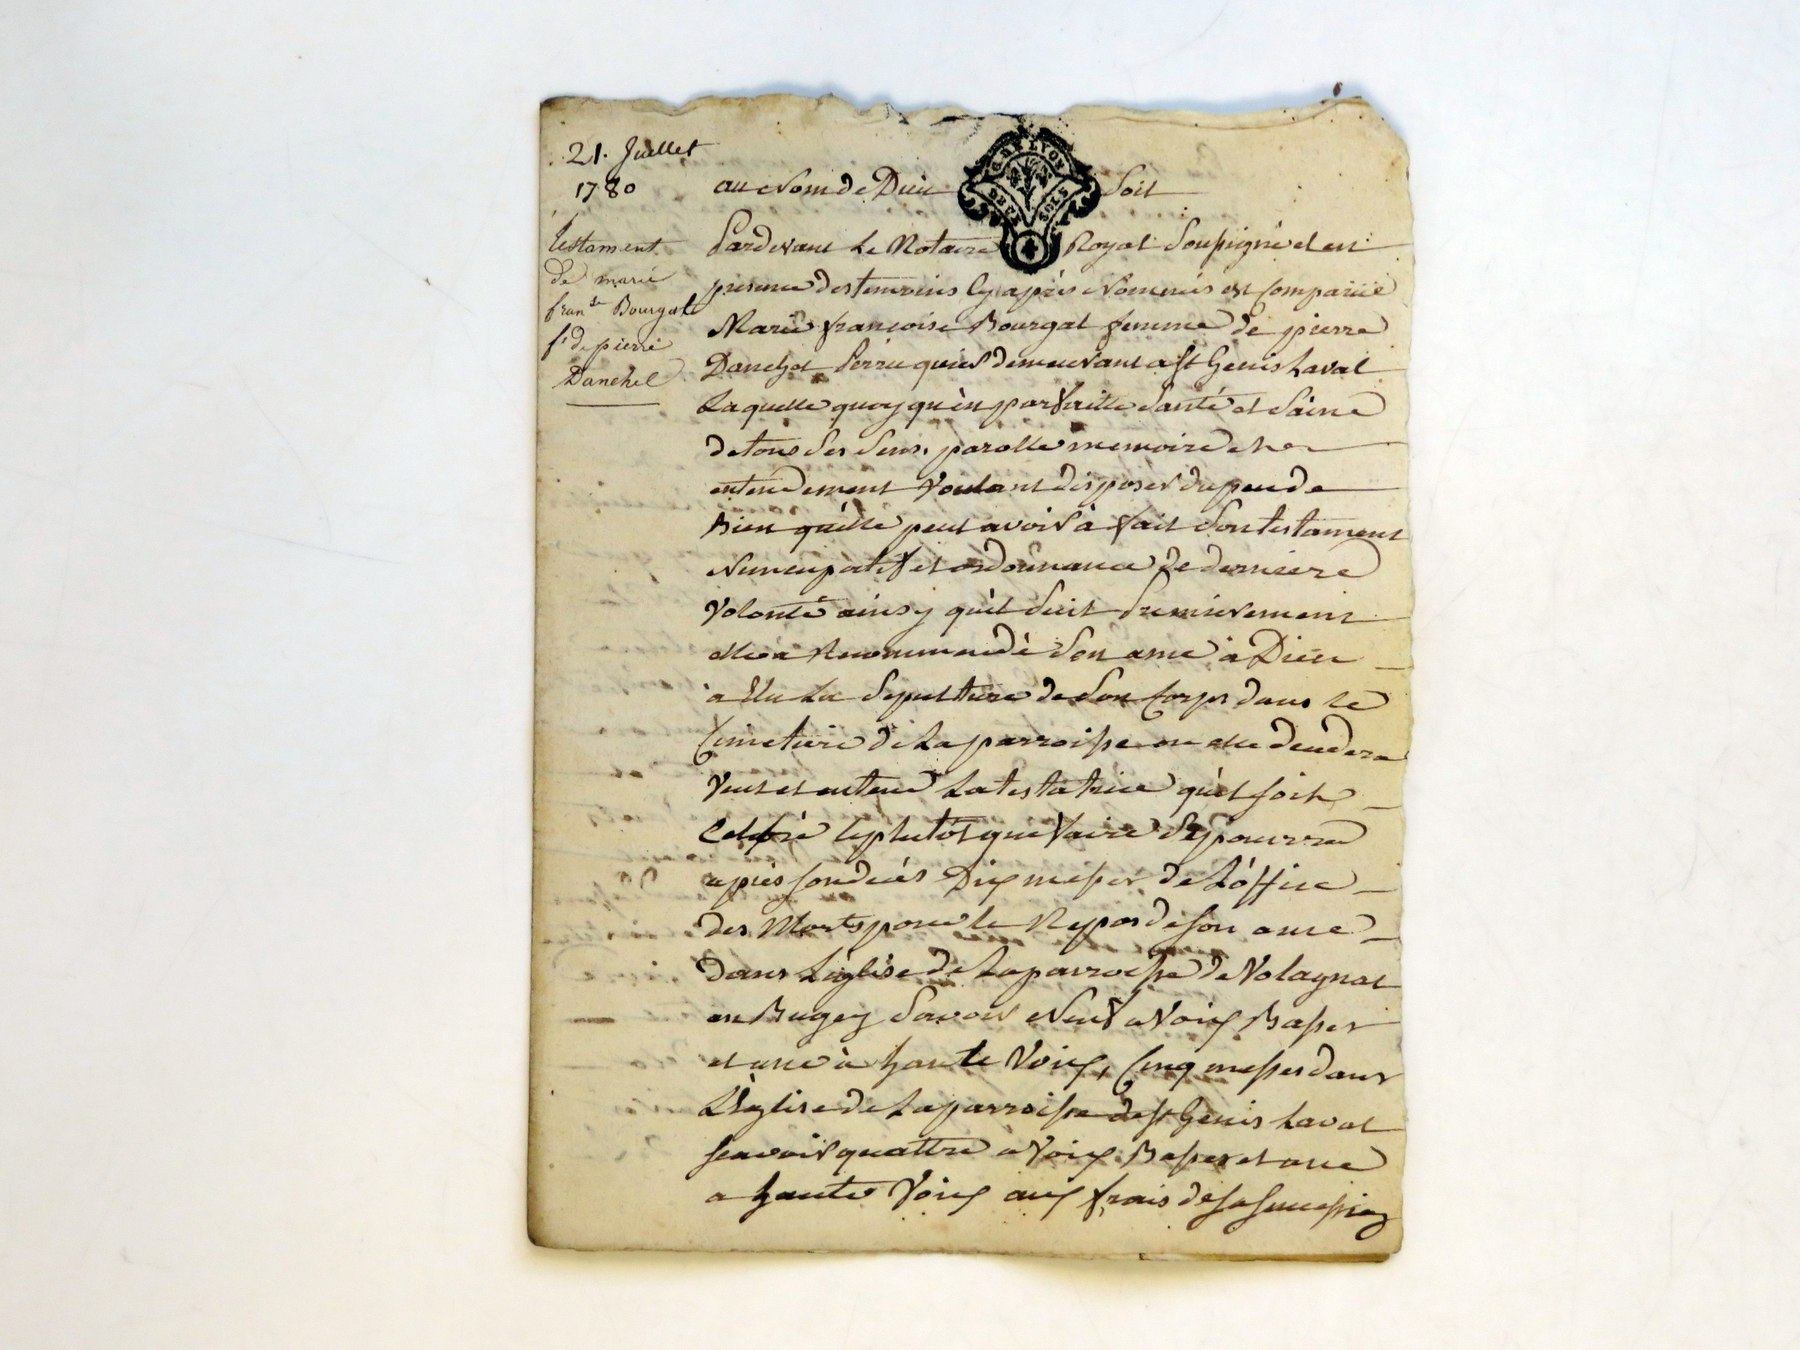 21. Juillet
1780
testament
de marie
fran.se Bourgat
f.e de pierre
Danchel
GEN LYON
DEUX SOLS
au Nom de Dieu Soit
Pardevant Le Notaire Royal Soussigné et en
presence des temoins Cy après Nommés est Comparüe
Marie françoise Bourgat femme de pierre
Danchel Perruquier demeurant a St Genis Laval
Laquelle quoy qu'èn parfaitte Santé et Saine
de tous Ses Sens, parolle memoire et
entendement Voulant disposer du peu de
Bien qu'elle peut avoir à fait Son testament
Nuncupatif et ordonnance de derniere
Volonté ainsy qu'il Suit Premierement
elle a Recommandé Son ame à Dieu
a Elu La Sepulture de Son Corps dans le
Cimetiere de La parroisse ou elle decedera
Veut et entend La testatrice qu'il soit
Celebré le plutôt que faire Se pourra
après son decès Dix messes de L'óffice
des Morts pour le Repos de son ame
dans L'église de La parroisse de Volagnat
en Bugey Savoir Neuf a Voix Basses
et une à haute Voix, Cinq messes dans
L'Eglise de La parroisse de St Genis Laval
scavoir quattre a Voix Basses et une
a haute Voix aux frais de sa succession